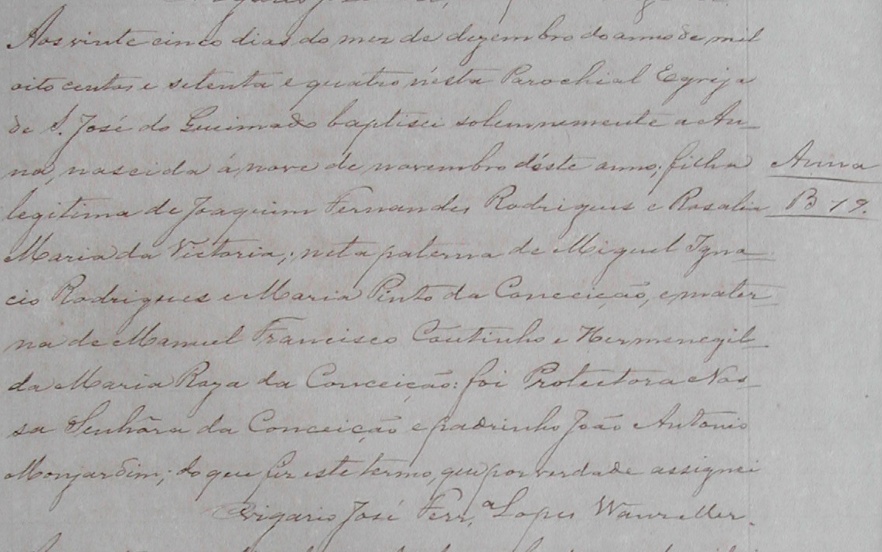 Aos vinte cinco dias do mez de dezembro do anno de mil
oito centos e setenta e quatro n'ésta Parochial Egrija
de S. José do Queimado baptisei solemnemente a An-
na, nascida á nove de novembro déste anno; filha
Anna
legitima de Joaquim Fernandes Rodrigues e Rosalia
B 19.
Maria da Victoria; neta paterna de Miguel Igna-
cio Rodrigues e Maria Pinto da Conceição, e mater-
na de Manuel Francisco Coutinho e Hermenegil-
da Maria Roza da Conceição: foi Protectora Nos-
sa Senhôra da Conceição e padrinho João Antonio
Monjardim; do que fiz este termo, que por verdade assignei
Vigario José Ferr.ª Lopes